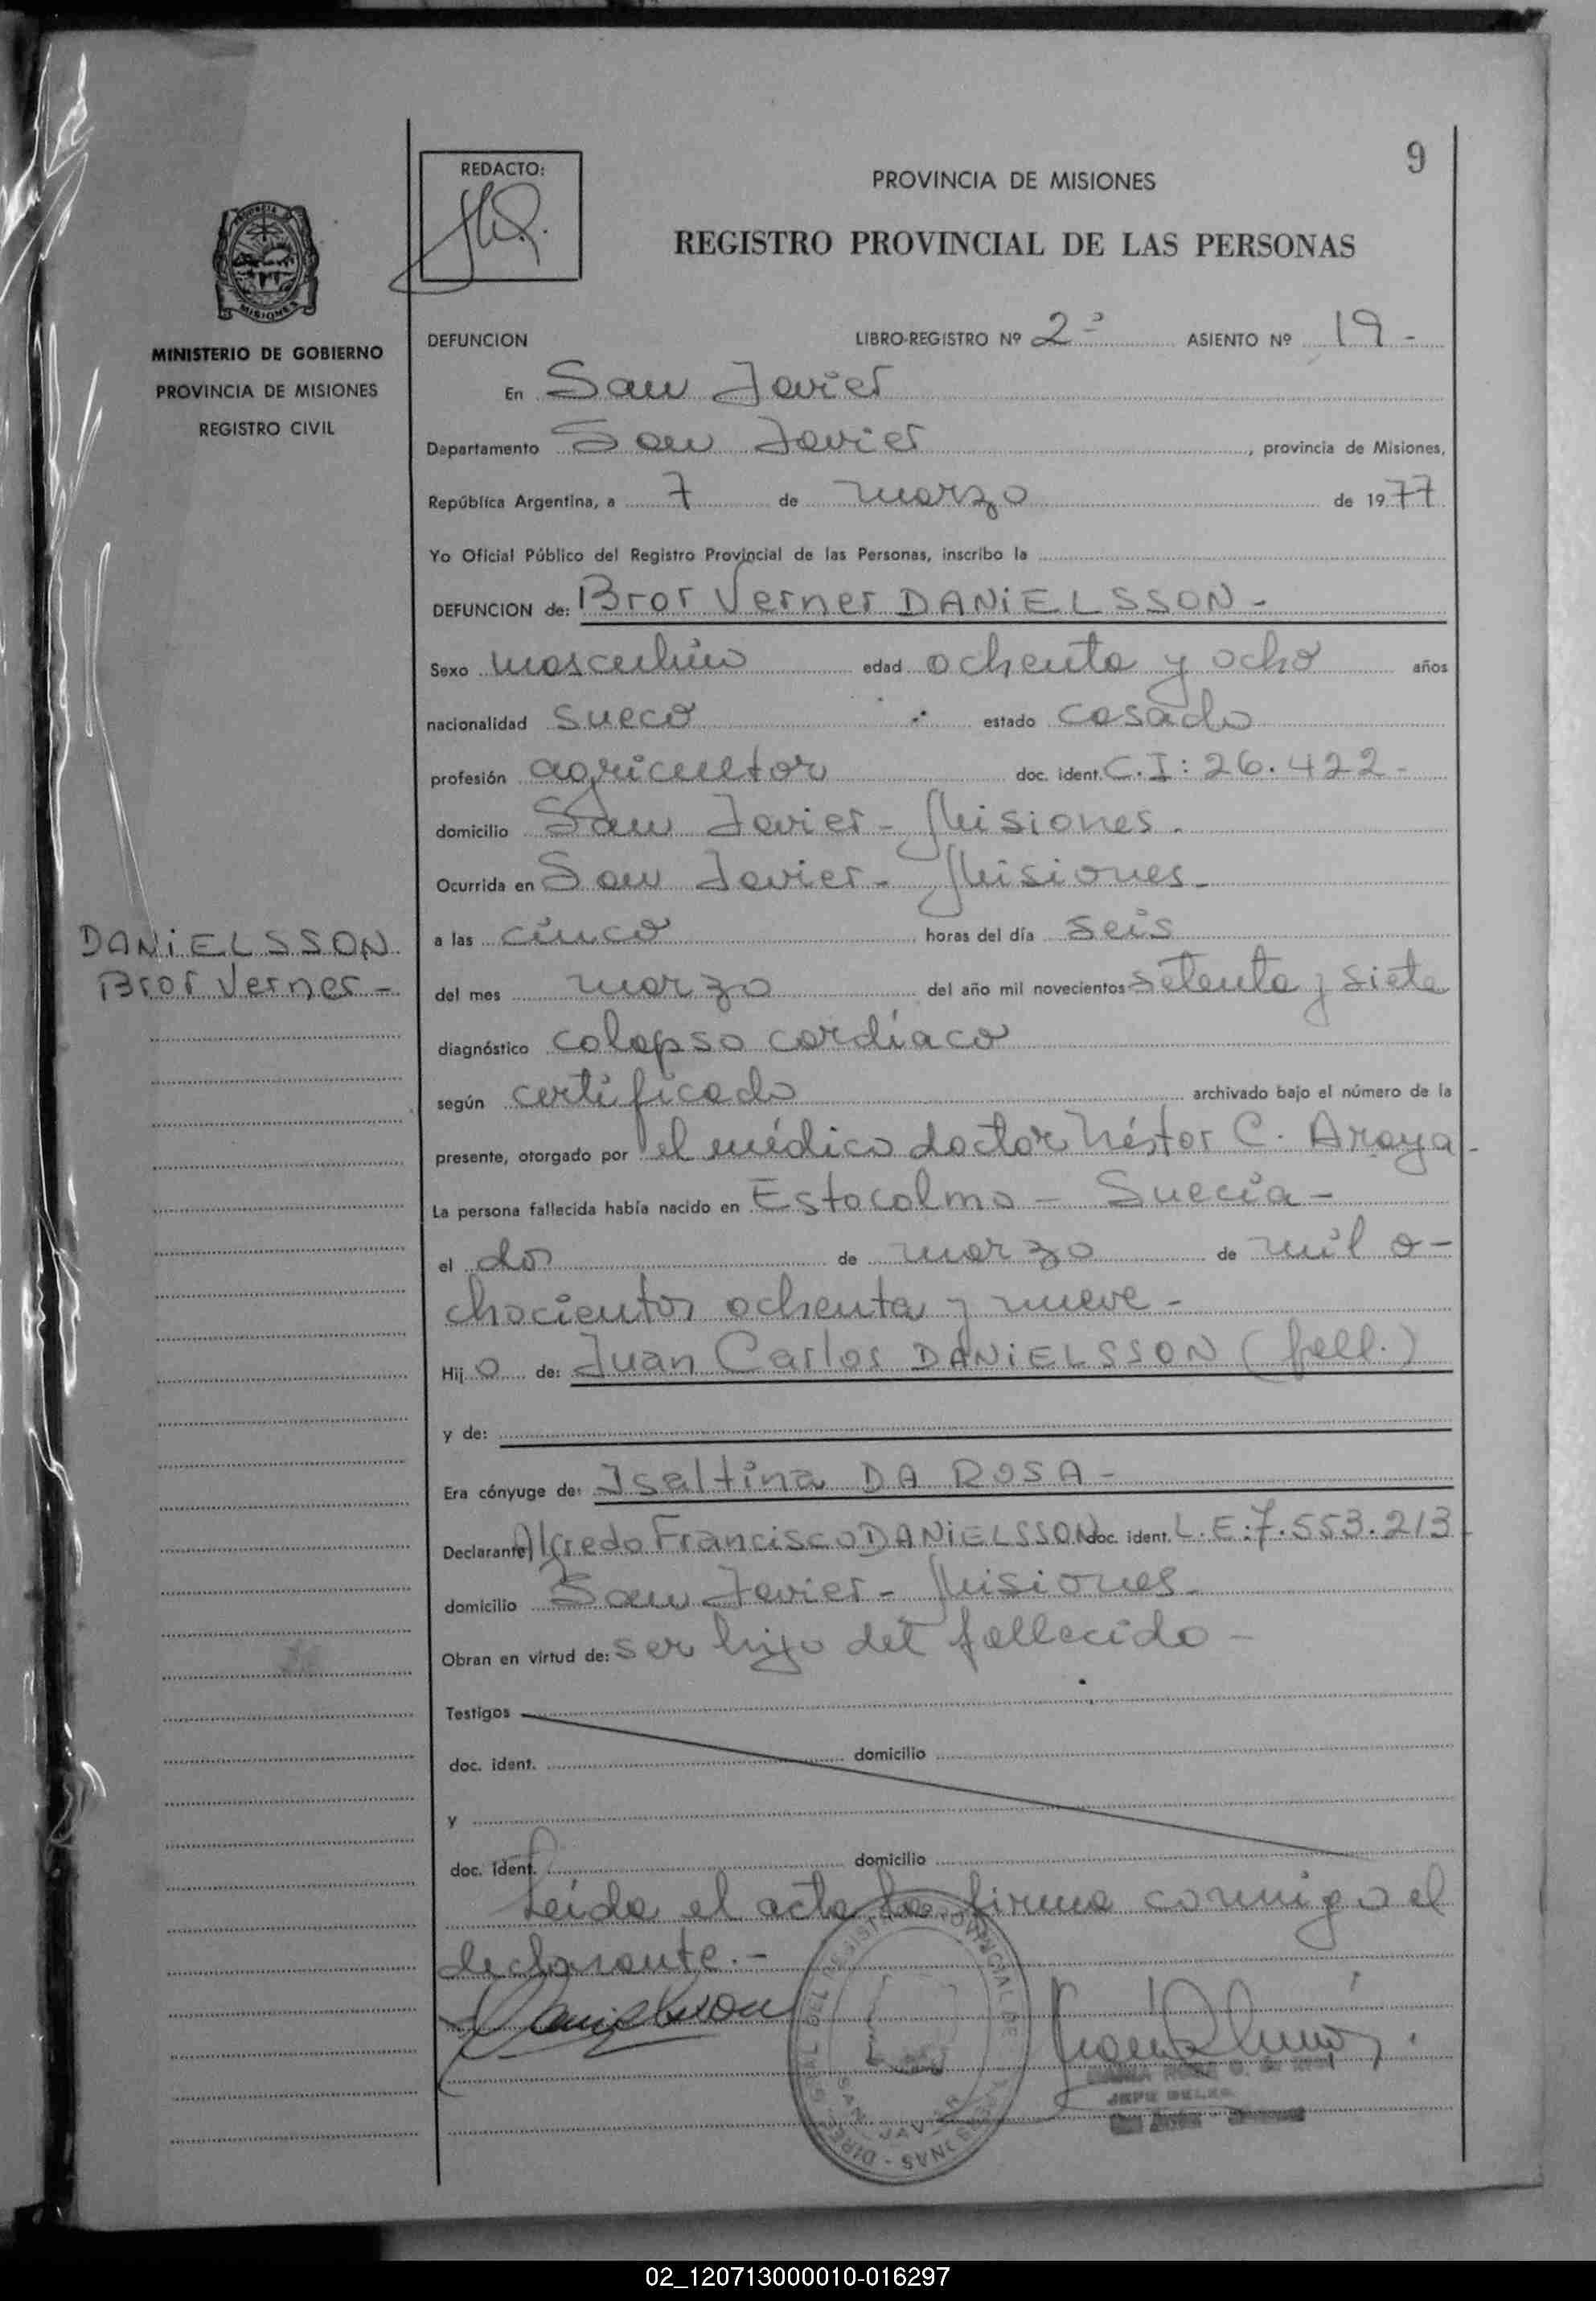 9
REDACTO:
PROVINCIA DE MISIONES
REGISTRO PROVINCIAL DE LAS PERSONAS
PROVINCIA DE
MISIONES
MINISTERIO DE GOBIERNO
PROVINCIA DE MISIONES
REGISTRO CIVIL
DEFUNCION LIBRO-REGISTRO Nº 2º ASIENTO Nº 19-
En San Javier
Departamento San Javier, provincia de Misiones,
República Argentina, a 7 de marzo de 1977
Yo Oficial Público del Registro Provincial de las Personas, inscribo la
DEFUNCION de: Bror Verner DANIELSSON-
Sexo masculino edad ochenta y ocho años
nacionalidad sueco estado casado
profesión agricultor doc. ident. C.I: 26.422-
domicilio San Javier- Misiones.
Ocurrida en San Javier- Misiones-
DANIELSSON
Bror Verner-
a las cinco horas del día seis
del mes marzo del año mil novecientos setenta y siete
diagnóstico colapso cardíaco
según certificado archivado bajo el número de la
presente, otorgado por el médico doctor Néstor C. Araya-
La persona fallecida había nacido en Estocolmo- Suecia-
el dos de marzo de mil o-
chocientos ochenta y nueve-
Hijo de: Juan Carlos DANIELSSON (fall.)
y de:
Era cónyuge de: Isaltina DA ROSA-
Declarante Alfredo Francisco DANIELSSON doc. ident. L.E:7.553.213-
domicilio San Javier- Misiones-
Obran en virtud de: ser hijo del fallecido-
Testigos
doc. ident. domicilio
y
doc. ident. domicilio
Leída el acta la firma conmigo el
declarante.-
Danielsson
SAN JAVIER
JEFE DELEG.
02_120713000010-016297